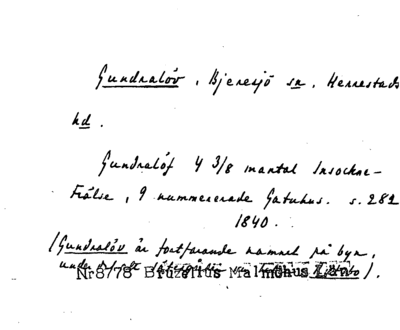 Gundralöv, Bjeresjö sn, Herrestads
hd.
Gundralöf 4 3/8 mantal Insockne-
Frälse, 9 nummererade Gatuhus. s. 282
1840.
(Gundralöv är fortfarande namnet på byn,
under
Nr8778 Bruzelius Malmöhus Län